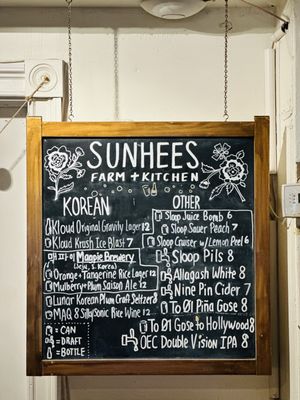 SUNHEES
FARM + KITCHEN
KOREAN
Kloud Original Gravity Lager 12
Kloud Krush Ice Blast 7
맥파이 Magpie Brewery
(Jeju, S. Korea)
Orange + Tangerine Rice Lager 12
Mulberry + Plum Saison Ale 12
Lunar Korean Plum Craft Seltzer 8
MAQ 8 Silky Sonic Rice Wine 12
= CAN
= DRAFT
= BOTTLE
OTHER
Sloop Juice Bomb 6
Sloop Sauer Peach 7
Sloop Cruiser w/ Lemon Peel 6
Sloop Pils 8
Allagash White 8
Nine Pin Cider 7
To Øl Piña Gose 8
To Øl Gose to Hollywood 8
OEC Double Vision IPA 8